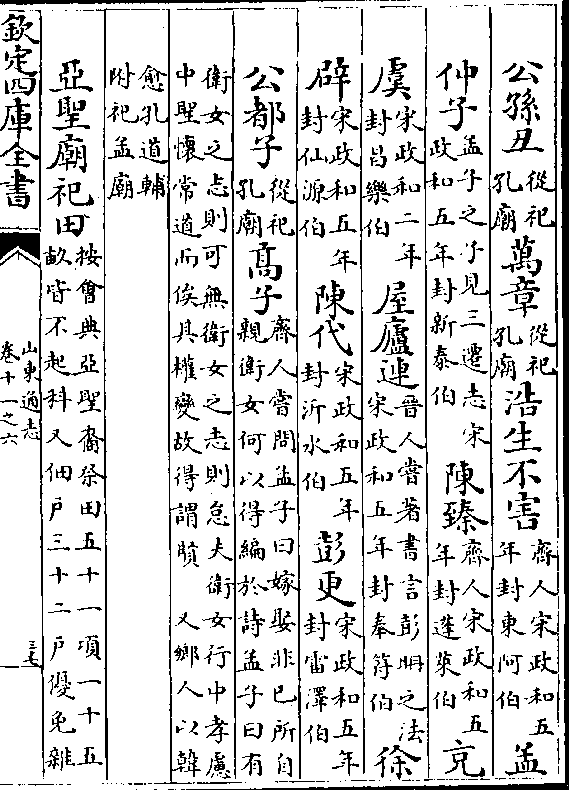 公孫丑從祀孔廟萬章從祀孔廟浩生不害齊人宋政和五年封東阿伯孟
仲子孟子之子見三遷志宋政和五年封新泰伯陳臻齊人宋政和五年封蓬萊伯充
虞宋政和二年封昌樂伯屋廬連晉人嘗著書言彭明之法宋政和五年封奉符伯徐
辟宋政和五年封仙源伯陳代宋政和五年封沂水伯彭更宋政和五年封雷澤伯
公都子從祀孔廟高子齊人嘗問孟子曰嫁娶非已所自親衛女何以得編於詩孟子曰有
衛女之志則可無衛女之志則怠夫衛女行中孝慮
中聖懷常道而俟其權變故得謂賢 又鄉人以韓
愈孔道輔
附祀孟廟
亞聖廟祀田按會典亞聖裔祭田五十一項一十五畝皆不起科又佃戶三十二戶優免雜
欽定四庫全書
山東通志
卷十一之六
三七